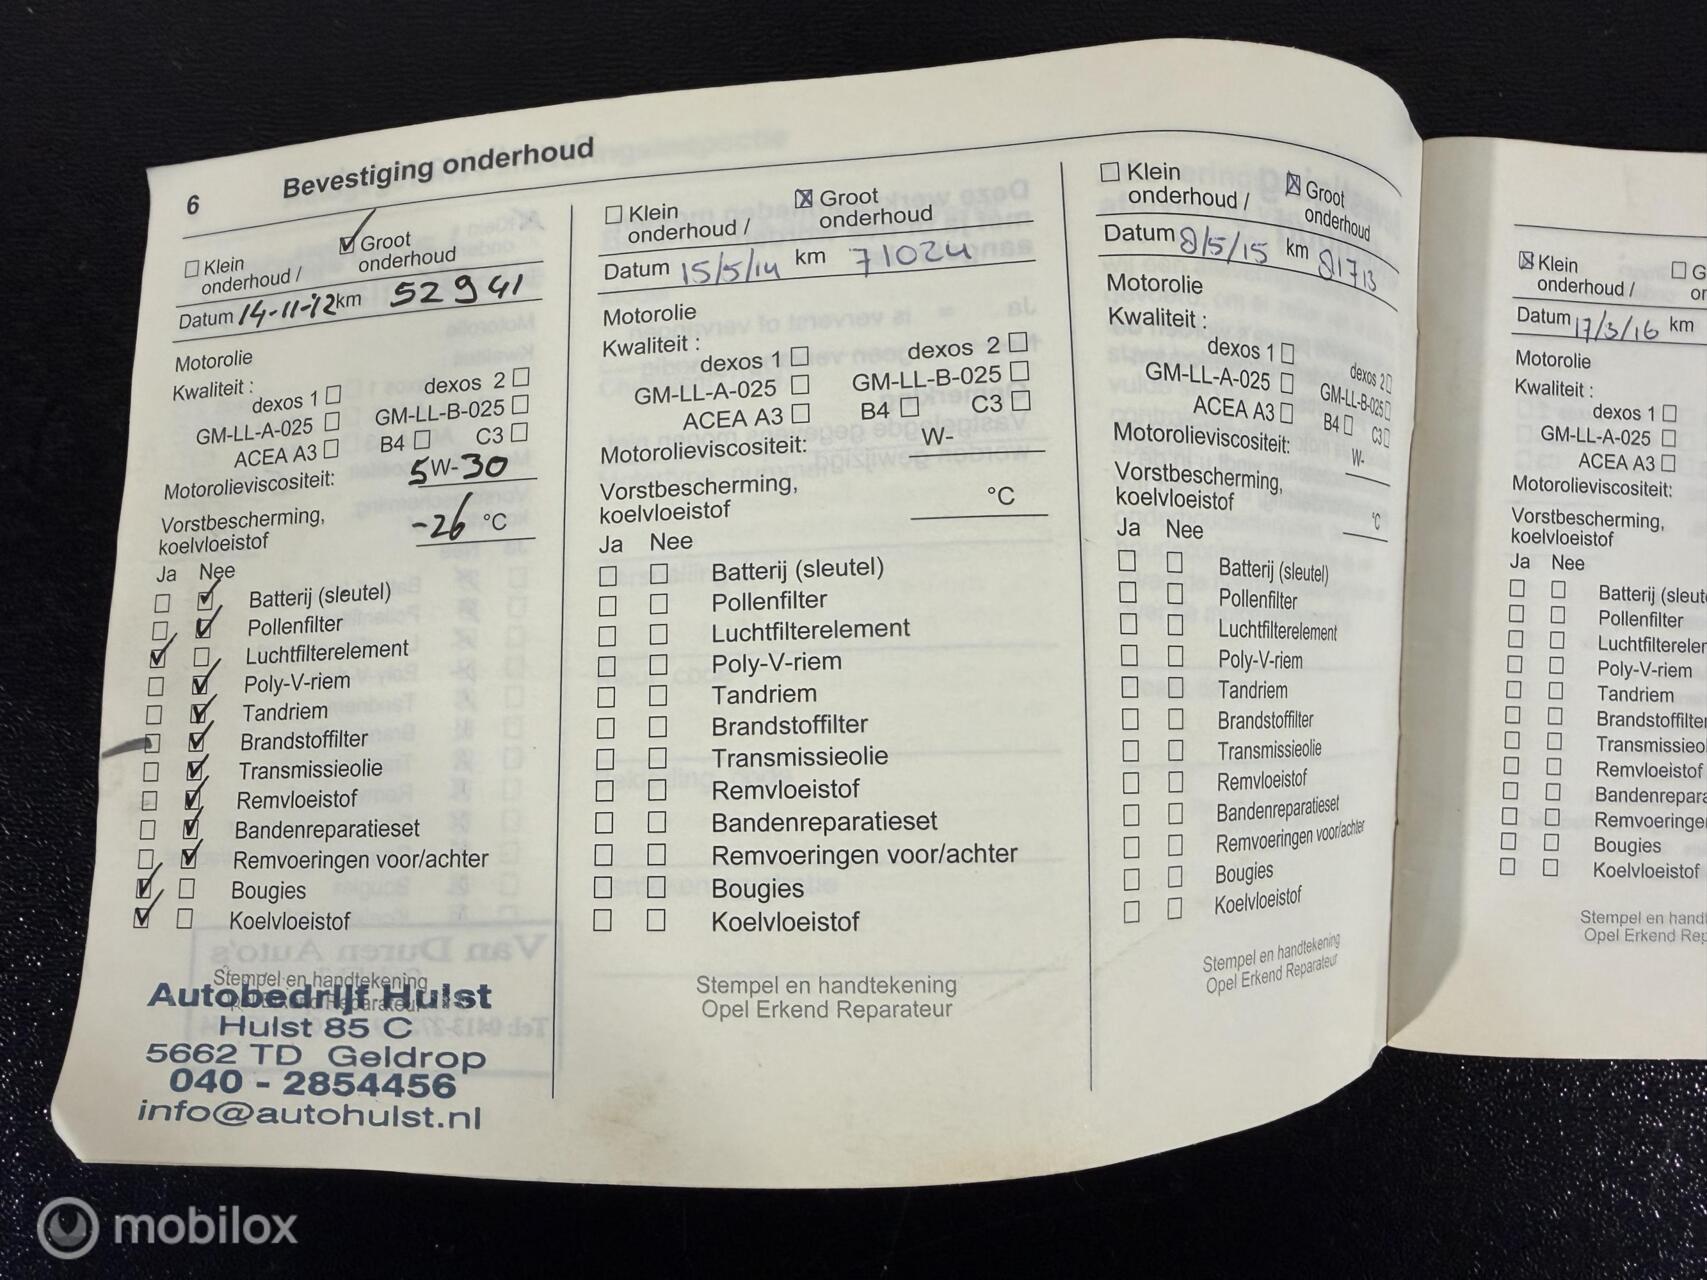 6 Bevestiging onderhoud
☐ Klein onderhoud / ☑ Groot onderhoud
Datum 14-11-'12 km 52941
Motorolie
Kwaliteit :
dexos 1 ☐ dexos 2 ☐
GM-LL-A-025 ☐ GM-LL-B-025 ☐
ACEA A3 ☐ B4 ☐ C3 ☐
Motorolieviscositeit: 5W-30
Vorstbescherming,
koelvloeistof -26 °C
Ja Nee
☐ ☑ Batterij (sleutel)
☐ ☑ Pollenfilter
☑ ☐ Luchtfilterelement
☐ ☑ Poly-V-riem
☐ ☑ Tandriem
☐ ☑ Brandstoffilter
☐ ☑ Transmissieolie
☐ ☑ Remvloeistof
☐ ☑ Bandenreparatieset
☐ ☑ Remvoeringen voor/achter
☑ ☐ Bougies
☑ ☐ Koelvloeistof
Stempel en handtekening
Opel Erkend Reparateur
Autobedrijf Hulst
Hulst 85 C
5662 TD Geldrop
040 - 2854456
info@autohulst.nl
☐ Klein onderhoud / ☒ Groot onderhoud
Datum 15/5/14 km 71024
Motorolie
Kwaliteit :
dexos 1 ☐ dexos 2 ☐
GM-LL-A-025 ☐ GM-LL-B-025 ☐
ACEA A3 ☐ B4 ☐ C3 ☐
Motorolieviscositeit: W-
Vorstbescherming,
koelvloeistof °C
Ja Nee
☐ ☐ Batterij (sleutel)
☐ ☐ Pollenfilter
☐ ☐ Luchtfilterelement
☐ ☐ Poly-V-riem
☐ ☐ Tandriem
☐ ☐ Brandstoffilter
☐ ☐ Transmissieolie
☐ ☐ Remvloeistof
☐ ☐ Bandenreparatieset
☐ ☐ Remvoeringen voor/achter
☐ ☐ Bougies
☐ ☐ Koelvloeistof
Stempel en handtekening
Opel Erkend Reparateur
☐ Klein onderhoud / ☒ Groot onderhoud
Datum 8/5/15 km 81713
Motorolie
Kwaliteit :
dexos 1 ☐ dexos 2 ☐
GM-LL-A-025 ☐ GM-LL-B-025 ☐
ACEA A3 ☐ B4 ☐ C3 ☐
Motorolieviscositeit: W-
Vorstbescherming,
koelvloeistof °C
Ja Nee
☐ ☐ Batterij (sleutel)
☐ ☐ Pollenfilter
☐ ☐ Luchtfilterelement
☐ ☐ Poly-V-riem
☐ ☐ Tandriem
☐ ☐ Brandstoffilter
☐ ☐ Transmissieolie
☐ ☐ Remvloeistof
☐ ☐ Bandenreparatieset
☐ ☐ Remvoeringen voor/achter
☐ ☐ Bougies
☐ ☐ Koelvloeistof
Stempel en handtekening
Opel Erkend Reparateur
☒ Klein onderhoud / ☐ G
Datum 17/3/16 km
Motorolie
Kwaliteit :
dexos 1 ☐
GM-LL-A-025 ☐
ACEA A3 ☐
Motorolieviscositeit:
Vorstbescherming,
koelvloeistof
Ja Nee
☐ ☐ Batterij (sleute
☐ ☐ Pollenfilter
☐ ☐ Luchtfilterelem
☐ ☐ Poly-V-riem
☐ ☐ Tandriem
☐ ☐ Brandstoffilte
☐ ☐ Transmissieo
☐ ☐ Remvloeistof
☐ ☐ Bandenrepara
☐ ☐ Remvoeringen
☐ ☐ Bougies
☐ ☐ Koelvloeistof
Stempel en hand
Opel Erkend Rep
mobilox